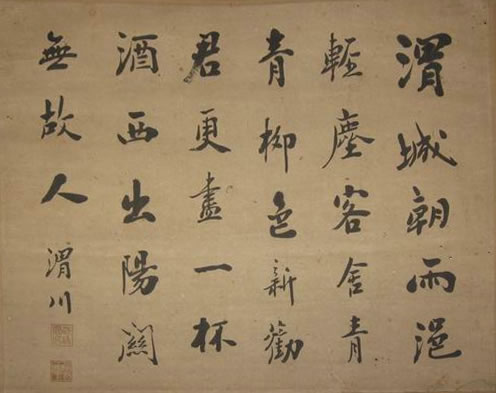 渭城朝雨浥
輕塵客舍青
青柳色新勸
君更盡一杯
酒西出陽關
無故人
渭川